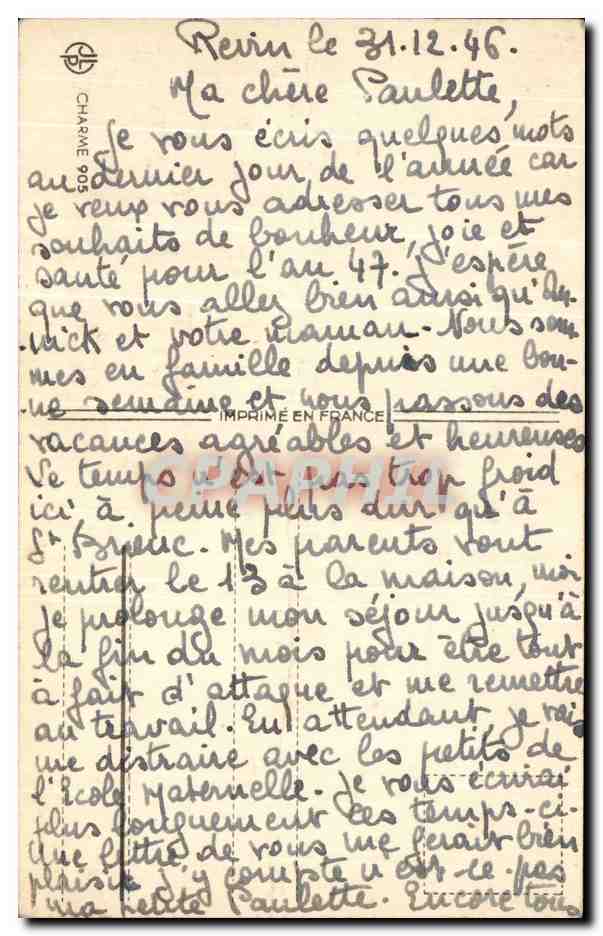 Revin le 31.12.46.
Ma chère Paulette,
Je vous écris quelques mots
au dernier jour de l'année car
je veux vous adresser tous mes
souhaits de bonheur, joie et
santé pour l'an 47. J'espère
que vous allez bien ainsi qu'An-
nick et votre maman. Nous som-
mes en famille depuis une bon-
ne semaine et nous passons des
IMPRIMÉ EN FRANCE
vacances agréables et heureuses
Le temps n'est pas trop froid
ici à peine plus dur qu'à
St Brieuc. Mes parents vont
rentrer le 13 à la maison, moi
je prolonge mon séjour jusqu'à
la fin du mois pour être tout
à fait d'attaque et me remettre
au travail. En attendant, je vais
me distraire avec les petits de
l'Ecole Maternelle. Je vous écrirai
plus longuement ces temps-ci.
Une lettre de vous me ferait bien
plaisir j'y compte n'est-ce-pas
ma petite Paulette. Encore tous
CHARME 905
CPAPHIL